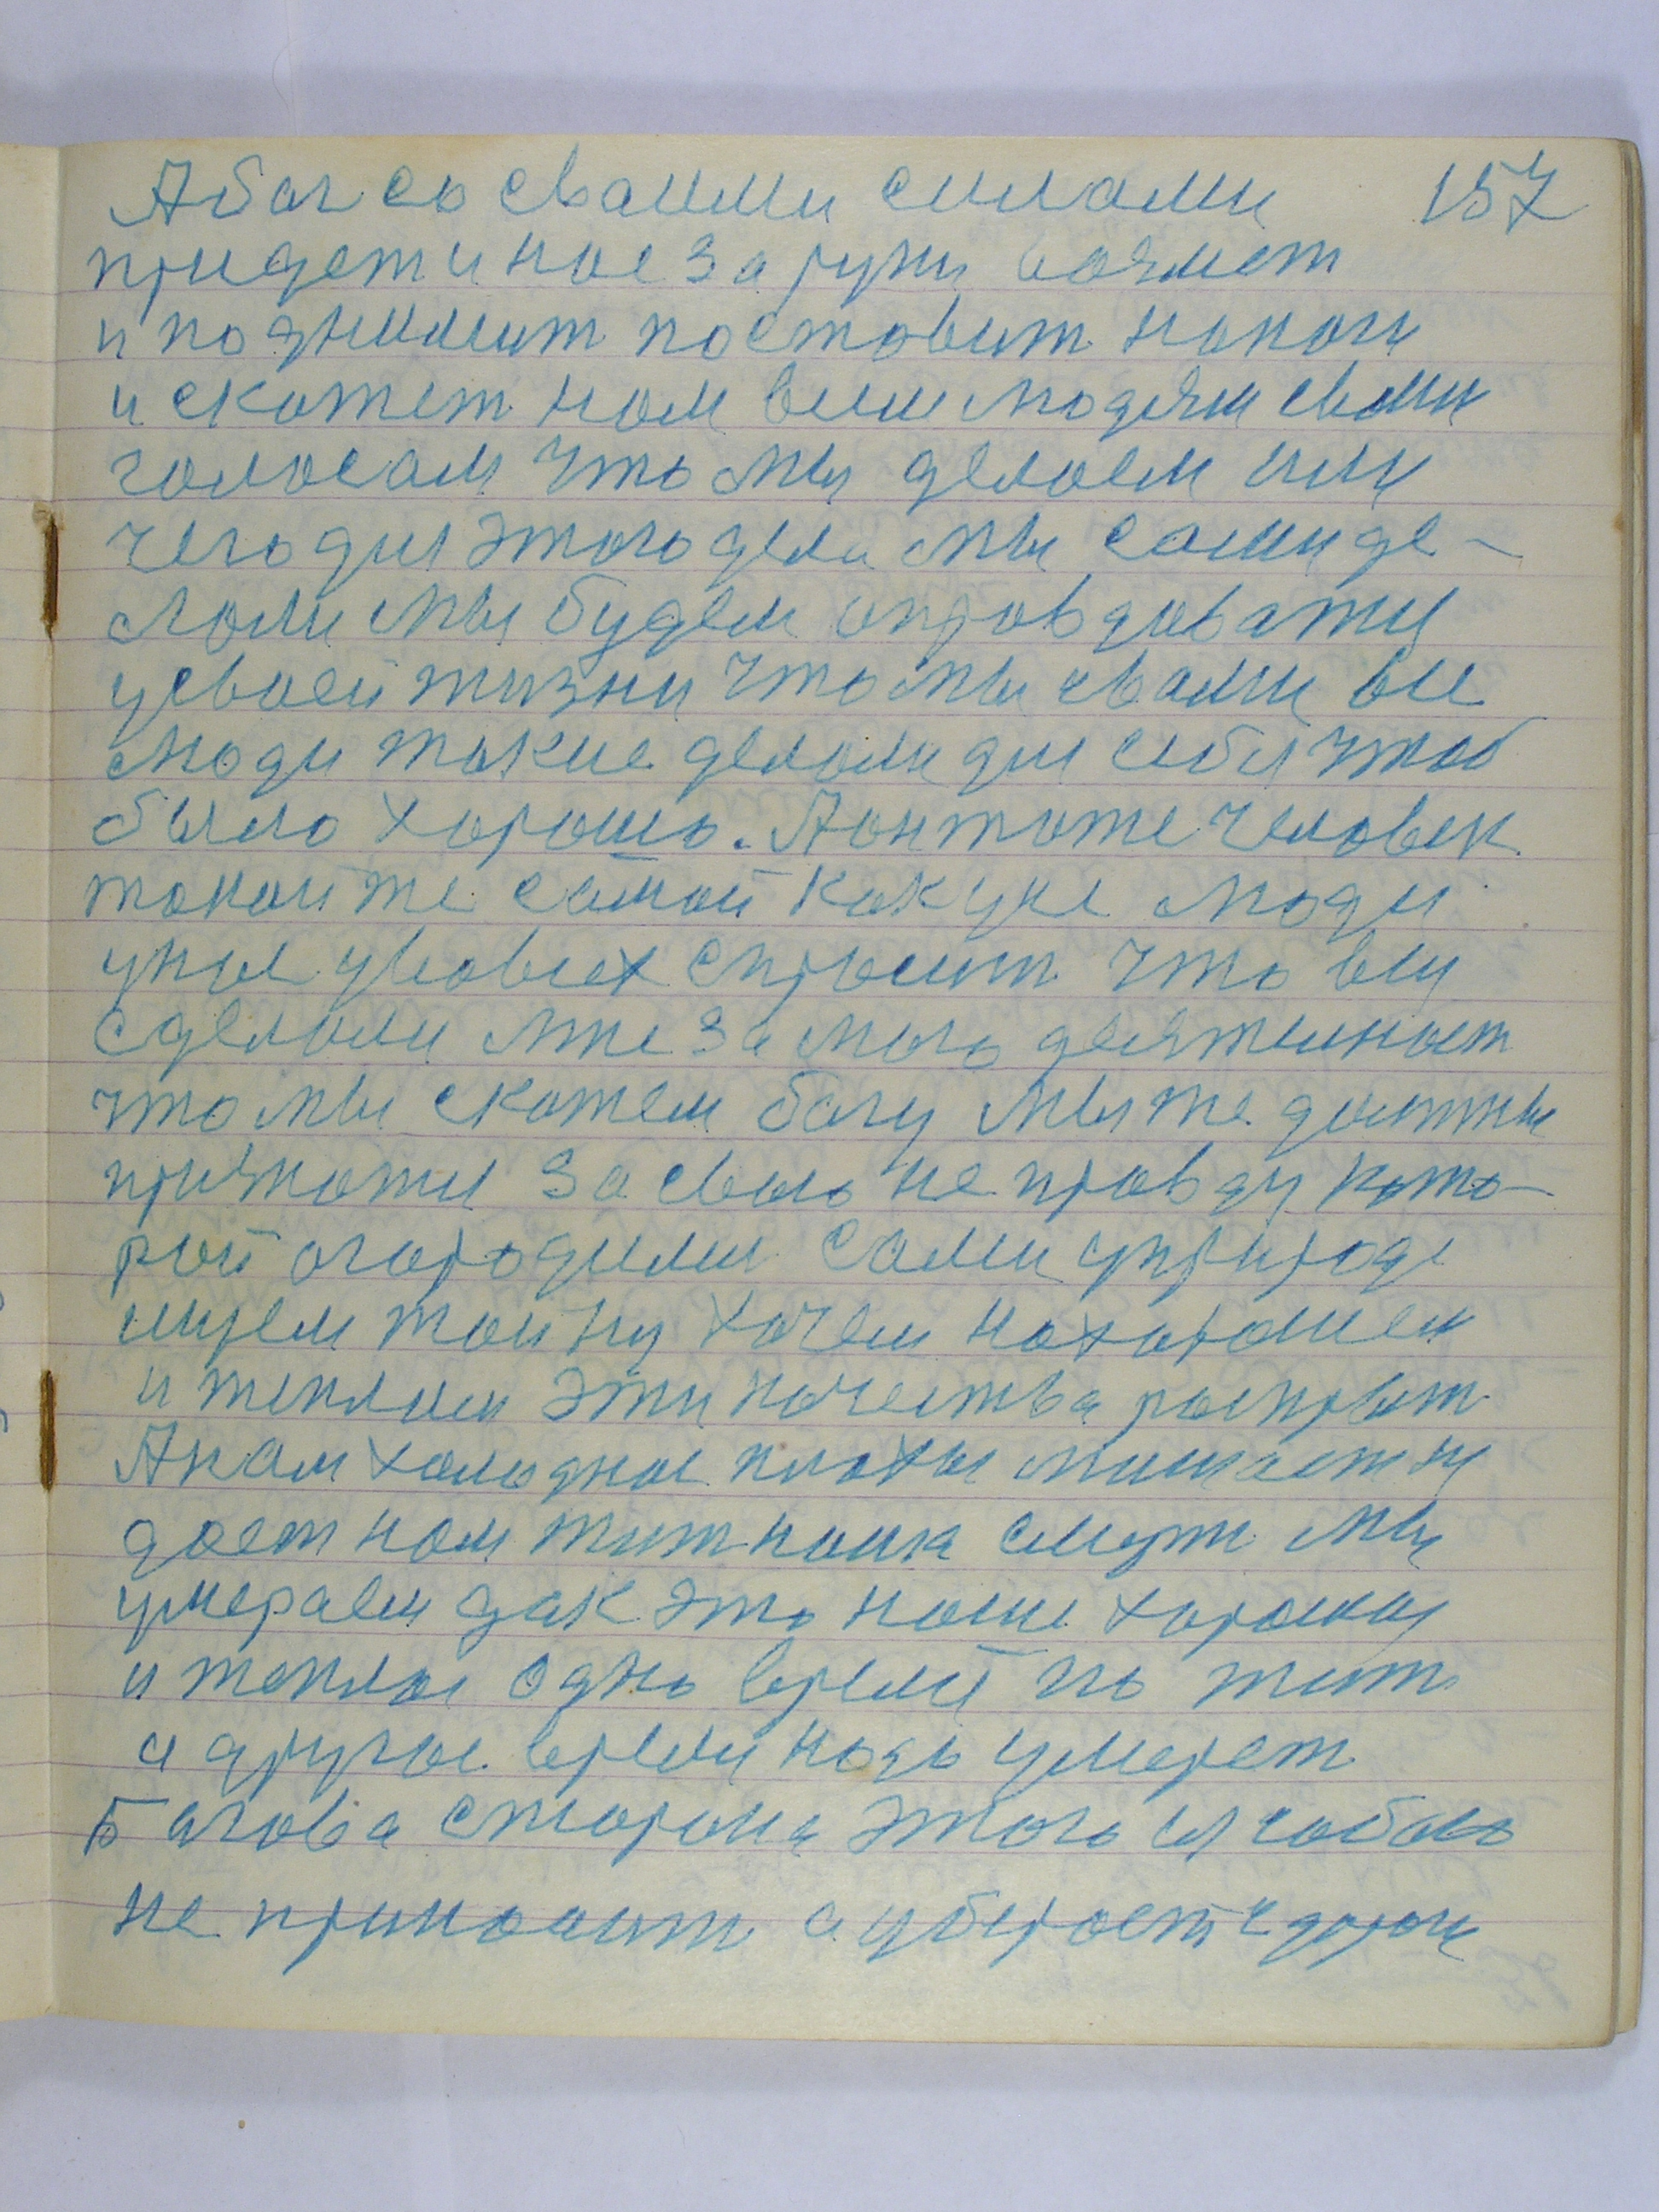 А бог со сваими силами 157
придет и нас за руки возмет
и поднимит поставит на ноги
и скажет нам всим людям сваим
голосам что мы делаем или
чего для этого дела мы сами де-
лали мы будем оправдоваты
у сваей жизни что мы с вами все
люди такие делали для себя чтоб
было хорошо. А он тоже человек
такой же самой как у не люди
у нас у всех спросит что вы
сделали мне за мого деятелност
что мы скажем богу мы же должны
признаты за свою не правду кото-
рой огородили сами у природе
ищем тайну хочем на хорошем
и теплом эти качества роскрыт
А нам холодное плохое мишает ни
дает нам жит наша смерт мы
умераем дак это наше хорошая
и теплое одно время но жит
а другое время надо умерет
Багова сторона этого из собою
не приносит а уберает с дороги